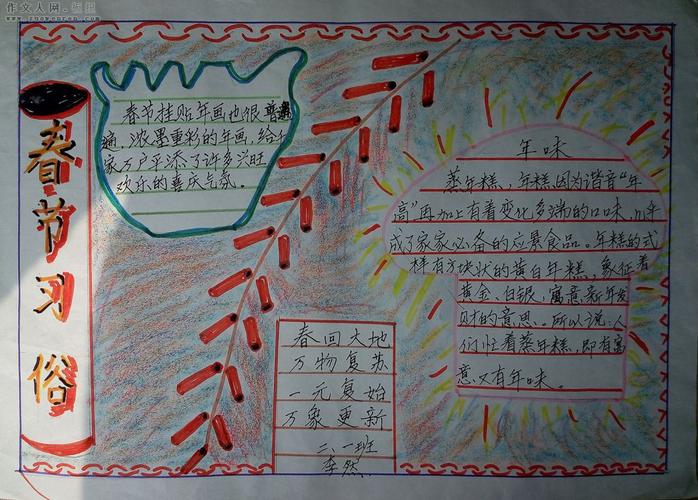 作文人网·板报
www.zuowenren.com
春节习俗
春节挂贴年画也很普遍
遍，浓墨重彩的年画，给千
家万户平添了许多兴旺
欢乐的喜庆气氛。
年味
蒸年糕，年糕因为谐音“年
高”再加上有着变化多端的口味，几乎
成了家家必备的应景食品。年糕的式
样有方块状的黄白年糕，象征着
黄金、白银，寓意新年发
财的意思。所以说：人
们忙着蒸年糕，即有寓
意又有年味。
春回大地
万物复苏
一元复始
万象更新
二、一班
李然